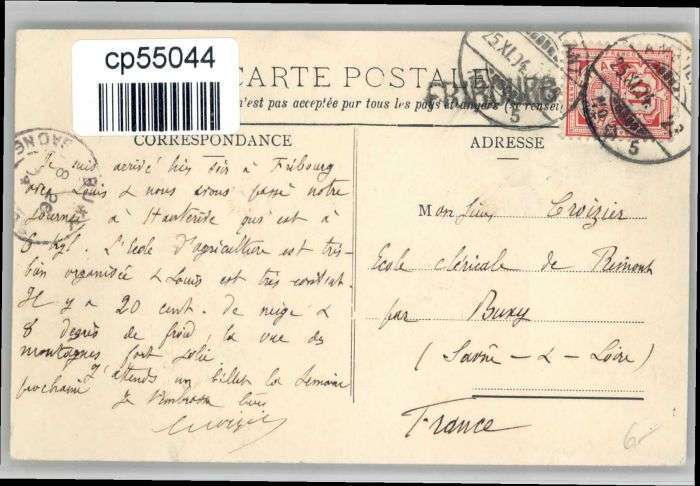 cp55044
CARTE POSTALE
n'est pas acceptée par tous les pays étrangers (se renseig
FRIBOURG
25.XI.04
5
25.XI.04
5
10
CORRESPONDANCE
ADRESSE
Je suis arrivé hier soir à Fribourg
avec Louis & nous avons passé notre
journée à Hauterive qui est à
6 Kyl. L'école d'agriculture est très
bien organisée & Louis est très content.
Il y a 20 cent. de neige &
8 degrés de froid, la vue des
montagnes fort jolie.
J'attends un billet la semaine
prochaine
Je t'embrasse bien
Croizier
Monsieur Croizier
Ecole cléricale de Rimont
par Buxy
(Saône-&-Loire)
France
6-